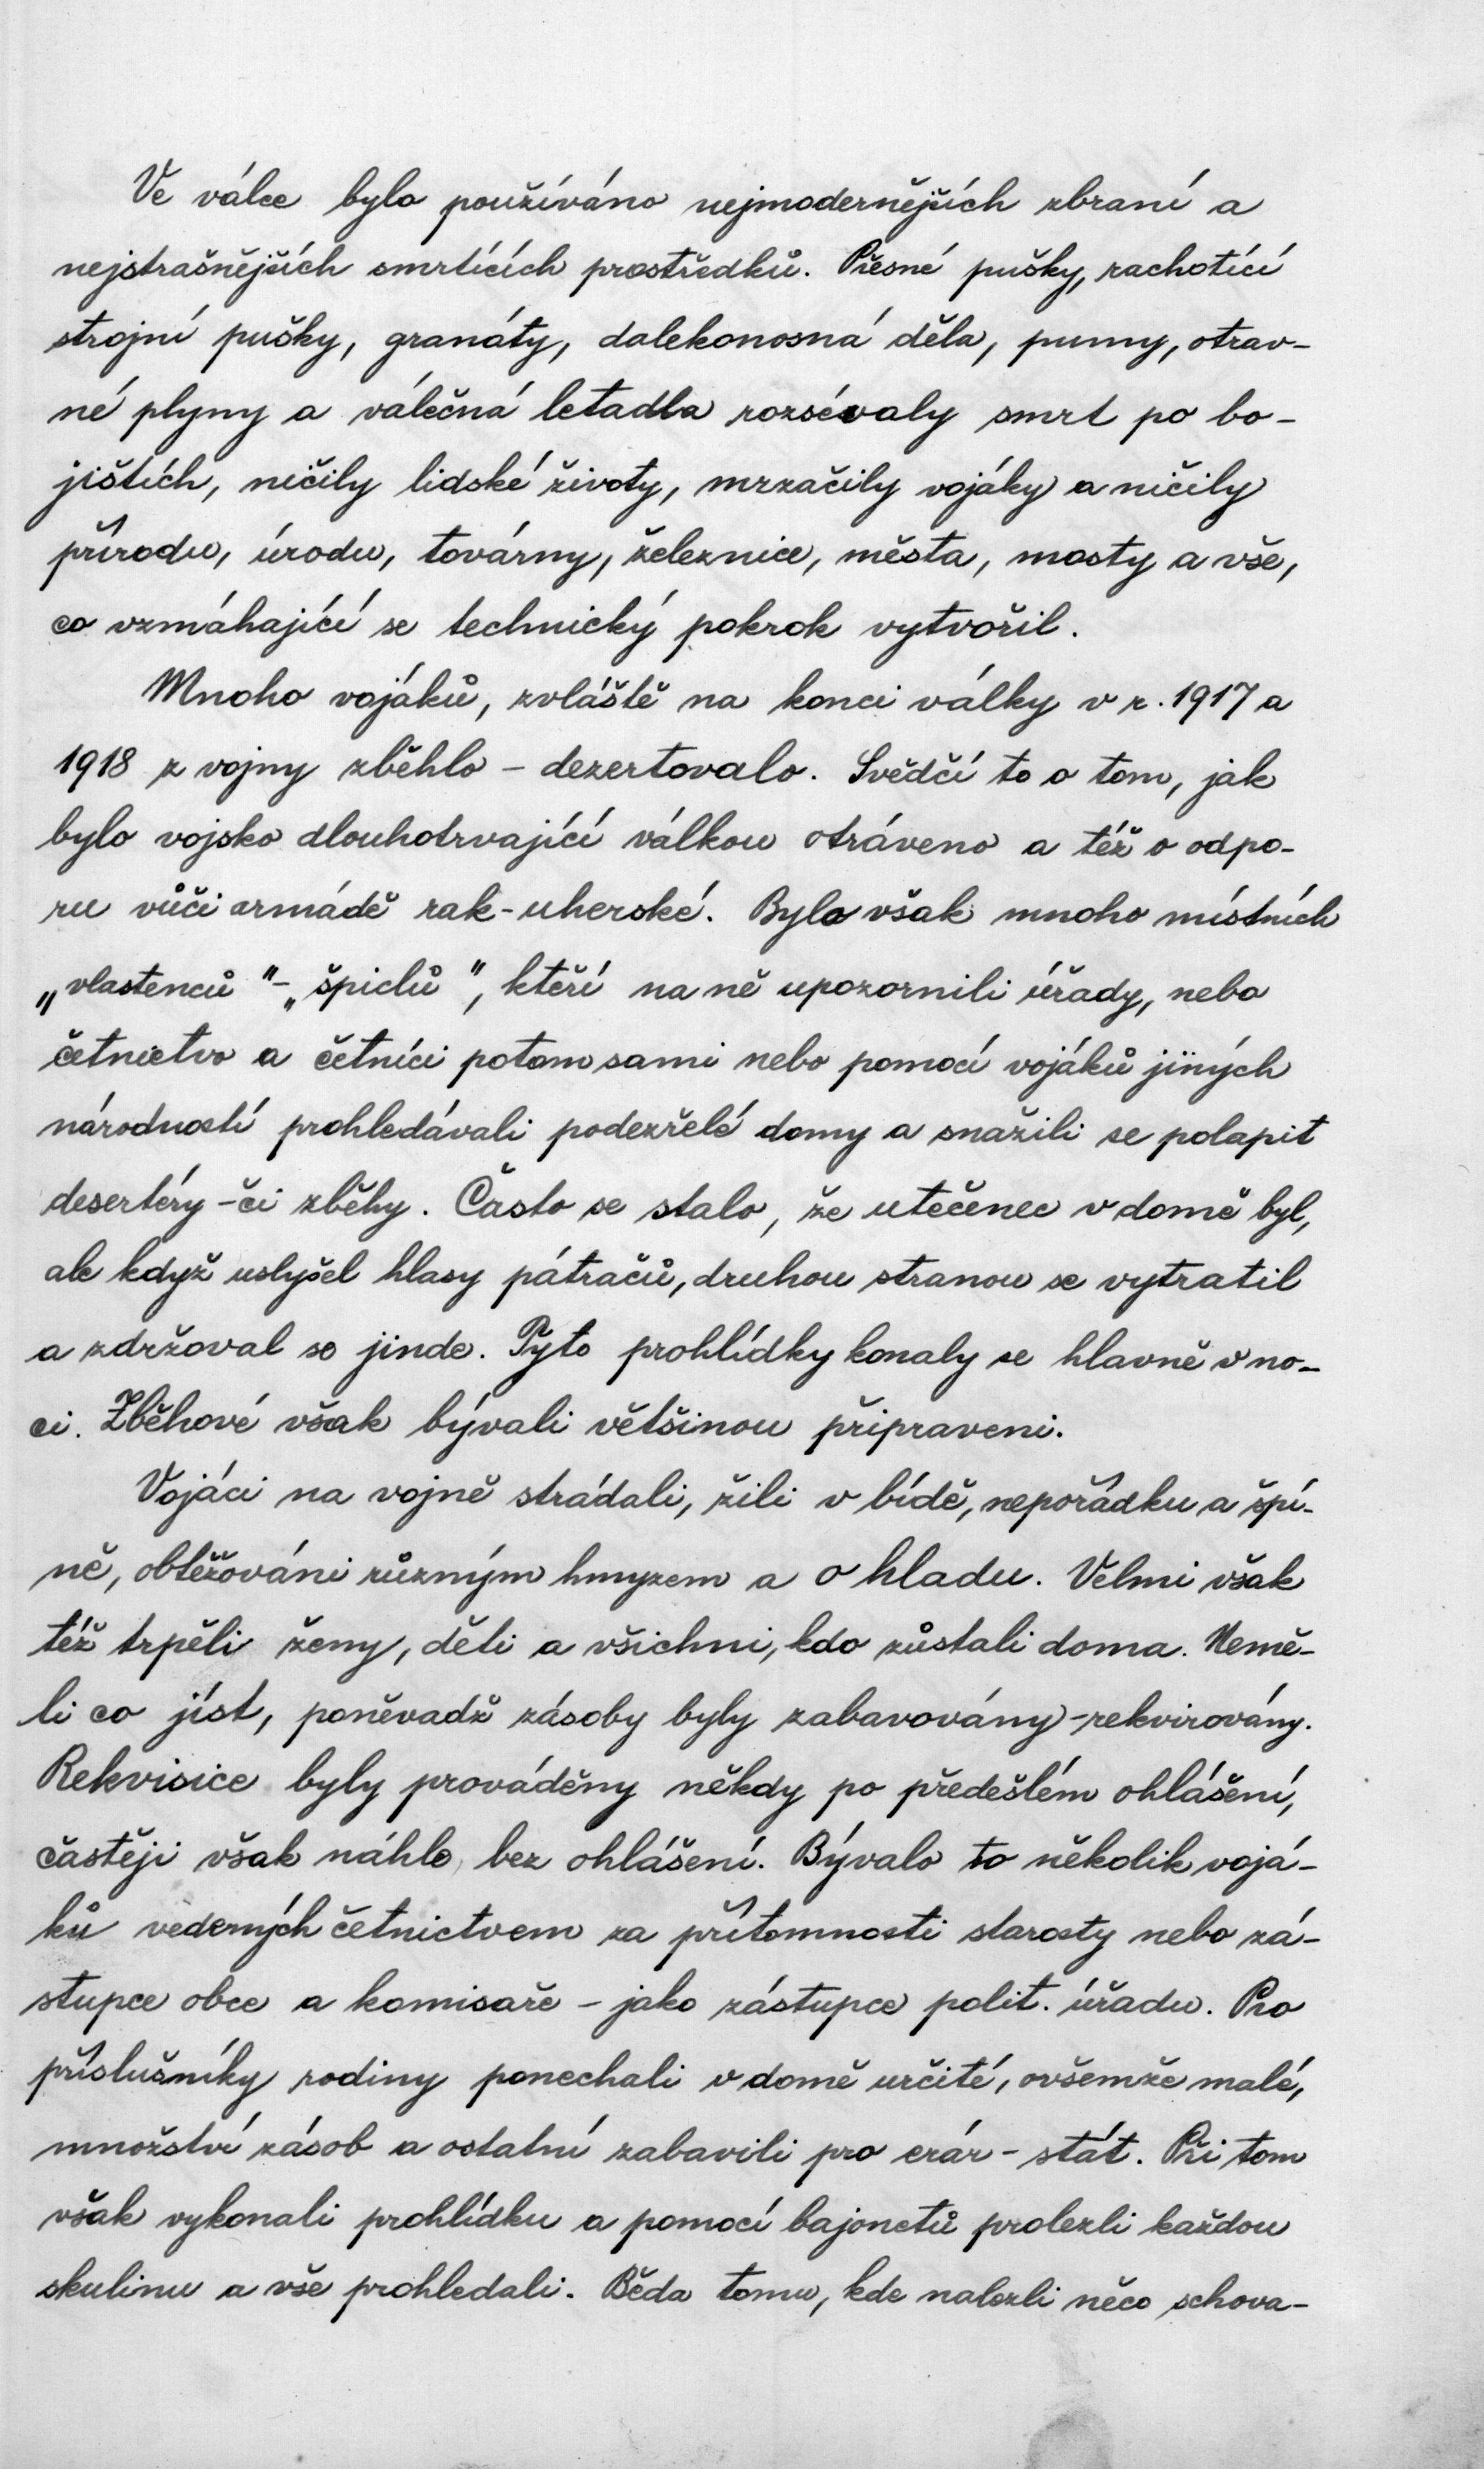 Ve válce bylo používáno nejmodernějších zbraní a
nejstrašnějších smrtících prostředků. Přesné pušky, rachotící
strojní pušky, granáty, dalekonosná děla, pumy, otrav-
né plyny a válečná letadla rozsévaly smrt po bo-
jištích, ničily lidské životy, mrzačily vojáky a ničily
přírodu, úrodu, továrny, železnice, města, mosty a vše,
co vzmáhající se technický pokrok vytvořil.
Mnoho vojáků, zvláště na konci války v r. 1917 a
1918 z vojny zběhlo - dezertovalo. Svědčí to o tom, jak
bylo vojsko dlouhotrvající válkou otráveno a též o odpo-
ru vůči armádě rak-uherské. Bylo však mnoho místních
„vlastenců"-„špiclů", kteří na ně upozornili úřady, nebo
četnictvo a četníci potom sami nebo pomocí vojáků jiných
národností prohledávali podezřelé domy a snažili se polapit
desertéry - či zběhy. Často se stalo, že utečenec v domě byl,
ale když uslyšel hlasy pátračů, druhou stranou se vytratil
a zdržoval se jinde. Tyto prohlídky konaly se hlavně v no-
ci. Zběhové však bývali většinou připraveni.
Vojáci na vojně strádali, žili v bídě, nepořádku a špí-
ně, obtěžováni různým hmyzem a o hladu. Velmi však
též trpěli ženy, děti a všichni, kdo zůstali doma. Nemě-
li co jíst, poněvadž zásoby byly zabavovány - rekvirovány.
Rekvisice byly prováděny někdy po předešlém ohlášení,
častěji však náhle, bez ohlášení. Bývalo to několik vojá-
ků vedených četnictvem za přítomnosti starosty nebo zá-
stupce obce a komisaře - jako zástupce polit. úřadu. Pro
příslušníky rodiny ponechali v domě určité, ovšemže malé,
množství zásob a ostatní zabavili pro erár - stát. Při tom
však vykonali prohlídku a pomocí bajonetů prolezli každou
skulinu a vše prohledali. Běda tomu, kde nalezli něco schova-